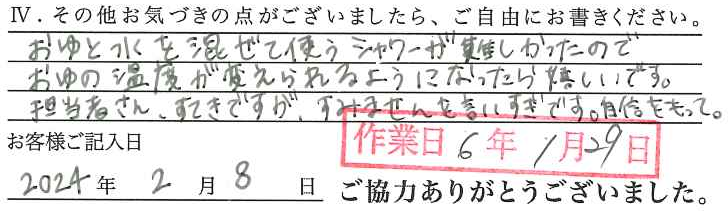 Ⅳ.その他お気づきの点がございましたら、ご自由にお書きください。
おゆと水を混ぜて使うシャワーが難しかったので
おゆの温度が変えられるようになったら嬉しいです。
担当者さん、すてきですが、すみませんを言いすぎです。自信をもって。
お客様ご記入日
作業日 6年 1月29日
2024年 2月 8日 ご協力ありがとうございました。